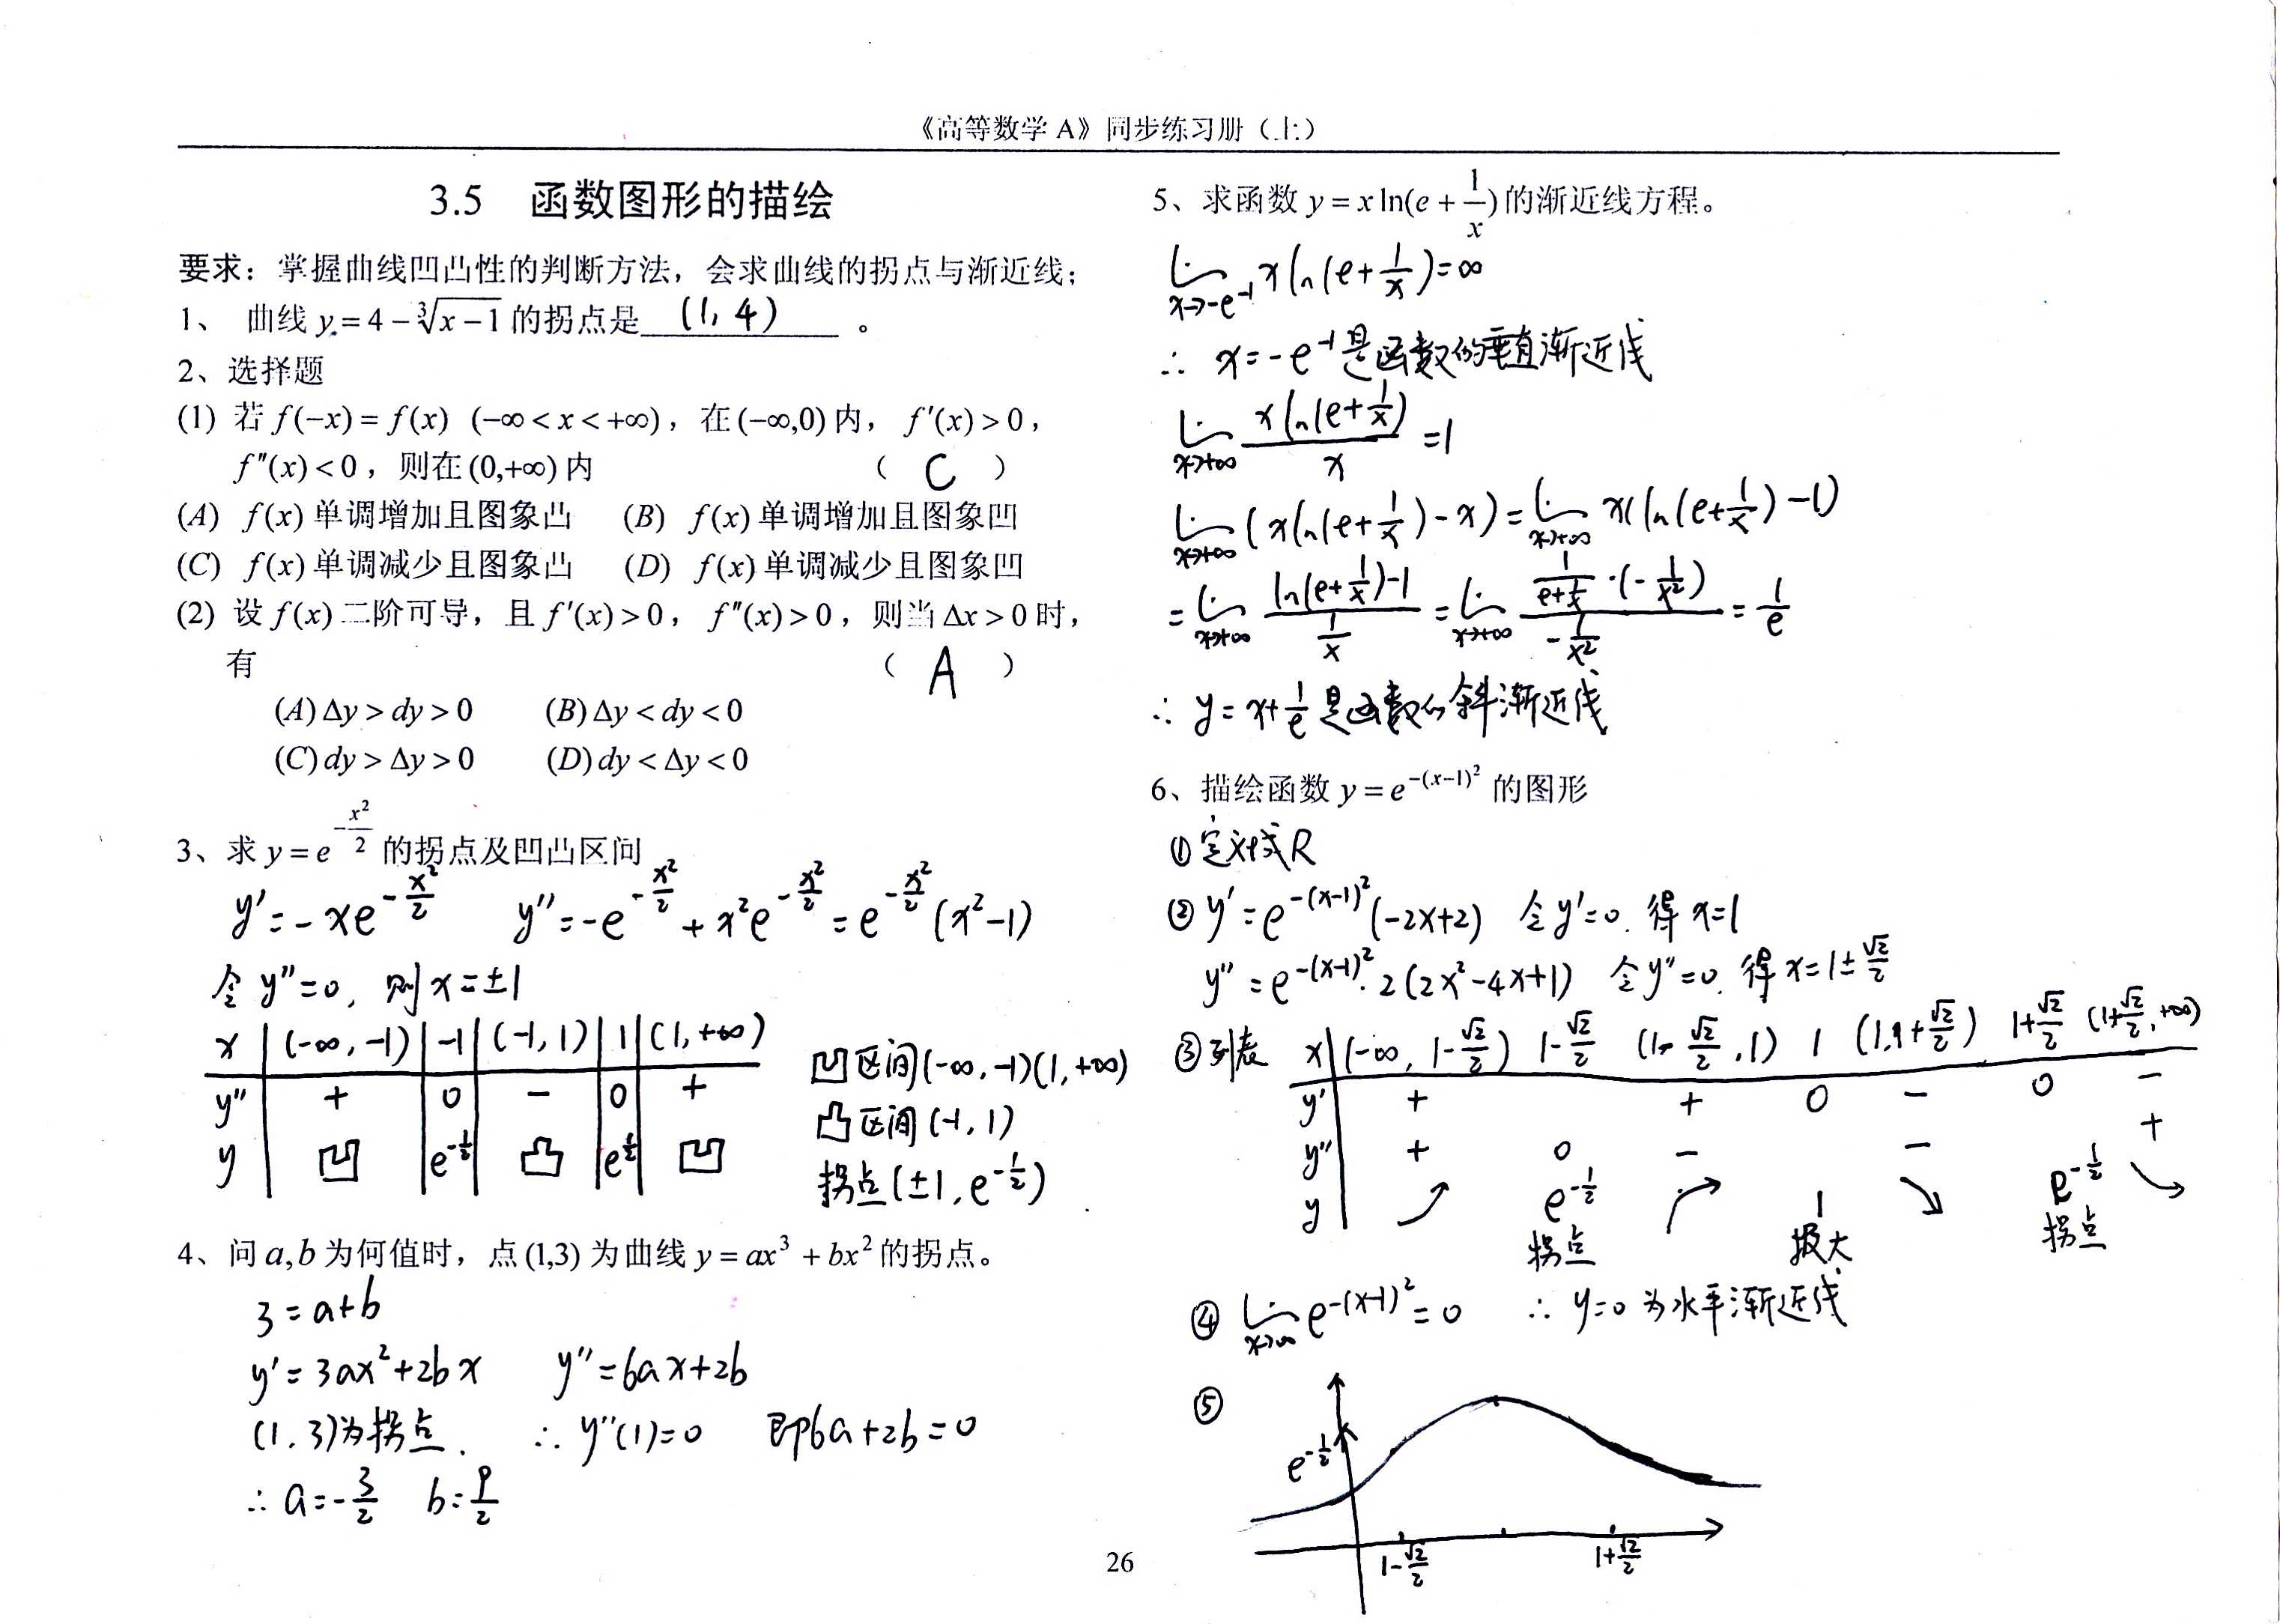 《高等数学 A》同步练习册（上）
3.5 函数图形的描绘
要求：掌握曲线凹凸性的判断方法，会求曲线的拐点与渐近线；
1、 曲线 y = 4 − ∛(x−1) 的拐点是 (1, 4) 。
2、选择题
(1) 若 f(−x) = f(x) (−∞ < x < +∞)，在 (−∞,0) 内， f′(x) > 0，
f″(x) < 0，则在 (0,+∞) 内 （ C ）
(A) f(x) 单调增加且图象凸 (B) f(x) 单调增加且图象凹
(C) f(x) 单调减少且图象凸 (D) f(x) 单调减少且图象凹
(2) 设 f(x) 二阶可导，且 f′(x) > 0， f″(x) > 0，则当 Δx > 0 时，
有 （ A ）
(A) Δy > dy > 0 (B) Δy < dy < 0
(C) dy > Δy > 0 (D) dy < Δy < 0
3、求 y = e^(−x²/2) 的拐点及凹凸区间
y′ = −xe^(−x²/2) y″ = −e^(−x²/2) + x²e^(−x²/2) = e^(−x²/2)(x²−1)
令 y″=0, 则 x=±1
x (−∞, −1) −1 (−1, 1) 1 (1, +∞)
y″ + 0 − 0 +
y 凹 e^(−1/2) 凸 e^(−1/2) 凹
凹区间(−∞, −1)(1, +∞)
凸区间(−1, 1)
拐点(±1, e^(−1/2))
4、问 a,b 为何值时，点 (1,3) 为曲线 y = ax³ + bx² 的拐点。
3 = a+b
y′ = 3ax²+2bx y″ = 6ax+2b
(1, 3)为拐点. ∴ y″(1)=0 即6a+2b=0
∴ a=−3/2 b=9/2
5、求函数 y = x ln(e + 1/x) 的渐近线方程。
lim x→−e⁻¹ x ln(e+1/x) = ∞
∴ x=−e⁻¹是函数的垂直渐近线
lim x→+∞ x ln(e+1/x)/x = 1
lim x→+∞ (x ln(e+1/x) − x) = lim x→+∞ x(ln(e+1/x) −1)
= lim x→+∞ (ln(e+1/x)−1)/(1/x) = lim x→+∞ (1/(e+1/x)·(−1/x²))/(−1/x²) = 1/e
∴ y = x+1/e 是函数的斜渐近线
6、描绘函数 y = e^(−(x−1)²) 的图形
① 定义域R
② y′ = e^(−(x−1)²)(−2x+2) 令y′=0. 得 x=1
y″ = e^(−(x−1)²)·2(2x²−4x+1) 令y″=0. 得 x=1±√2/2
③ 列表 x (−∞, 1−√2/2) 1−√2/2 (1−√2/2, 1) 1 (1, 1+√2/2) 1+√2/2 (1+√2/2, +∞)
y′ + + 0 − 0 −
y″ + 0 − − +
y e^(−1/2) 1 e^(−1/2)
拐点 极大 拐点
④ lim x→∞ e^(−(x−1)²) = 0 ∴ y=0 为水平渐近线
⑤
e^(−1/2)
1−√2/2 1+√2/2
26